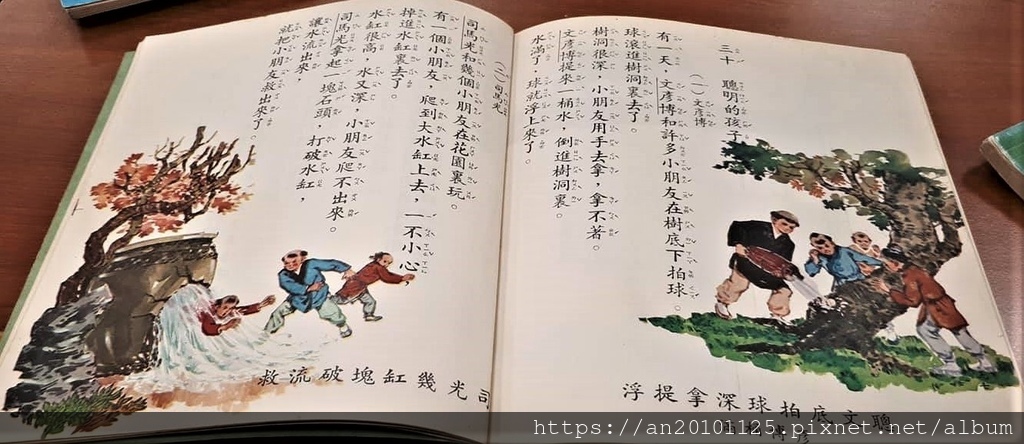 三十 聰明的孩子
(一) 文彥博
有一天,文彥博和許多小朋友在樹底下拍球。
球滾進樹洞裏去了。
樹洞很深,小朋友用手去拿,拿不著。
文彥博提來一桶水,倒進樹洞裏。
水滿了,球就浮上來了。
聰文底拍球深拿提浮
彥博
(二) 司馬光
司馬光和幾個小朋友在花園裏玩。
有一個小朋友,爬到大水缸上去,一不小心
掉進水缸裏去了。
水缸很高,水又深,小朋友爬不出來。
司馬光拿起一塊石頭,打破水缸,
讓水流出來,
就把小朋友救出來了。
司光幾缸塊破流救
https://an20101125.pixnet.net/album